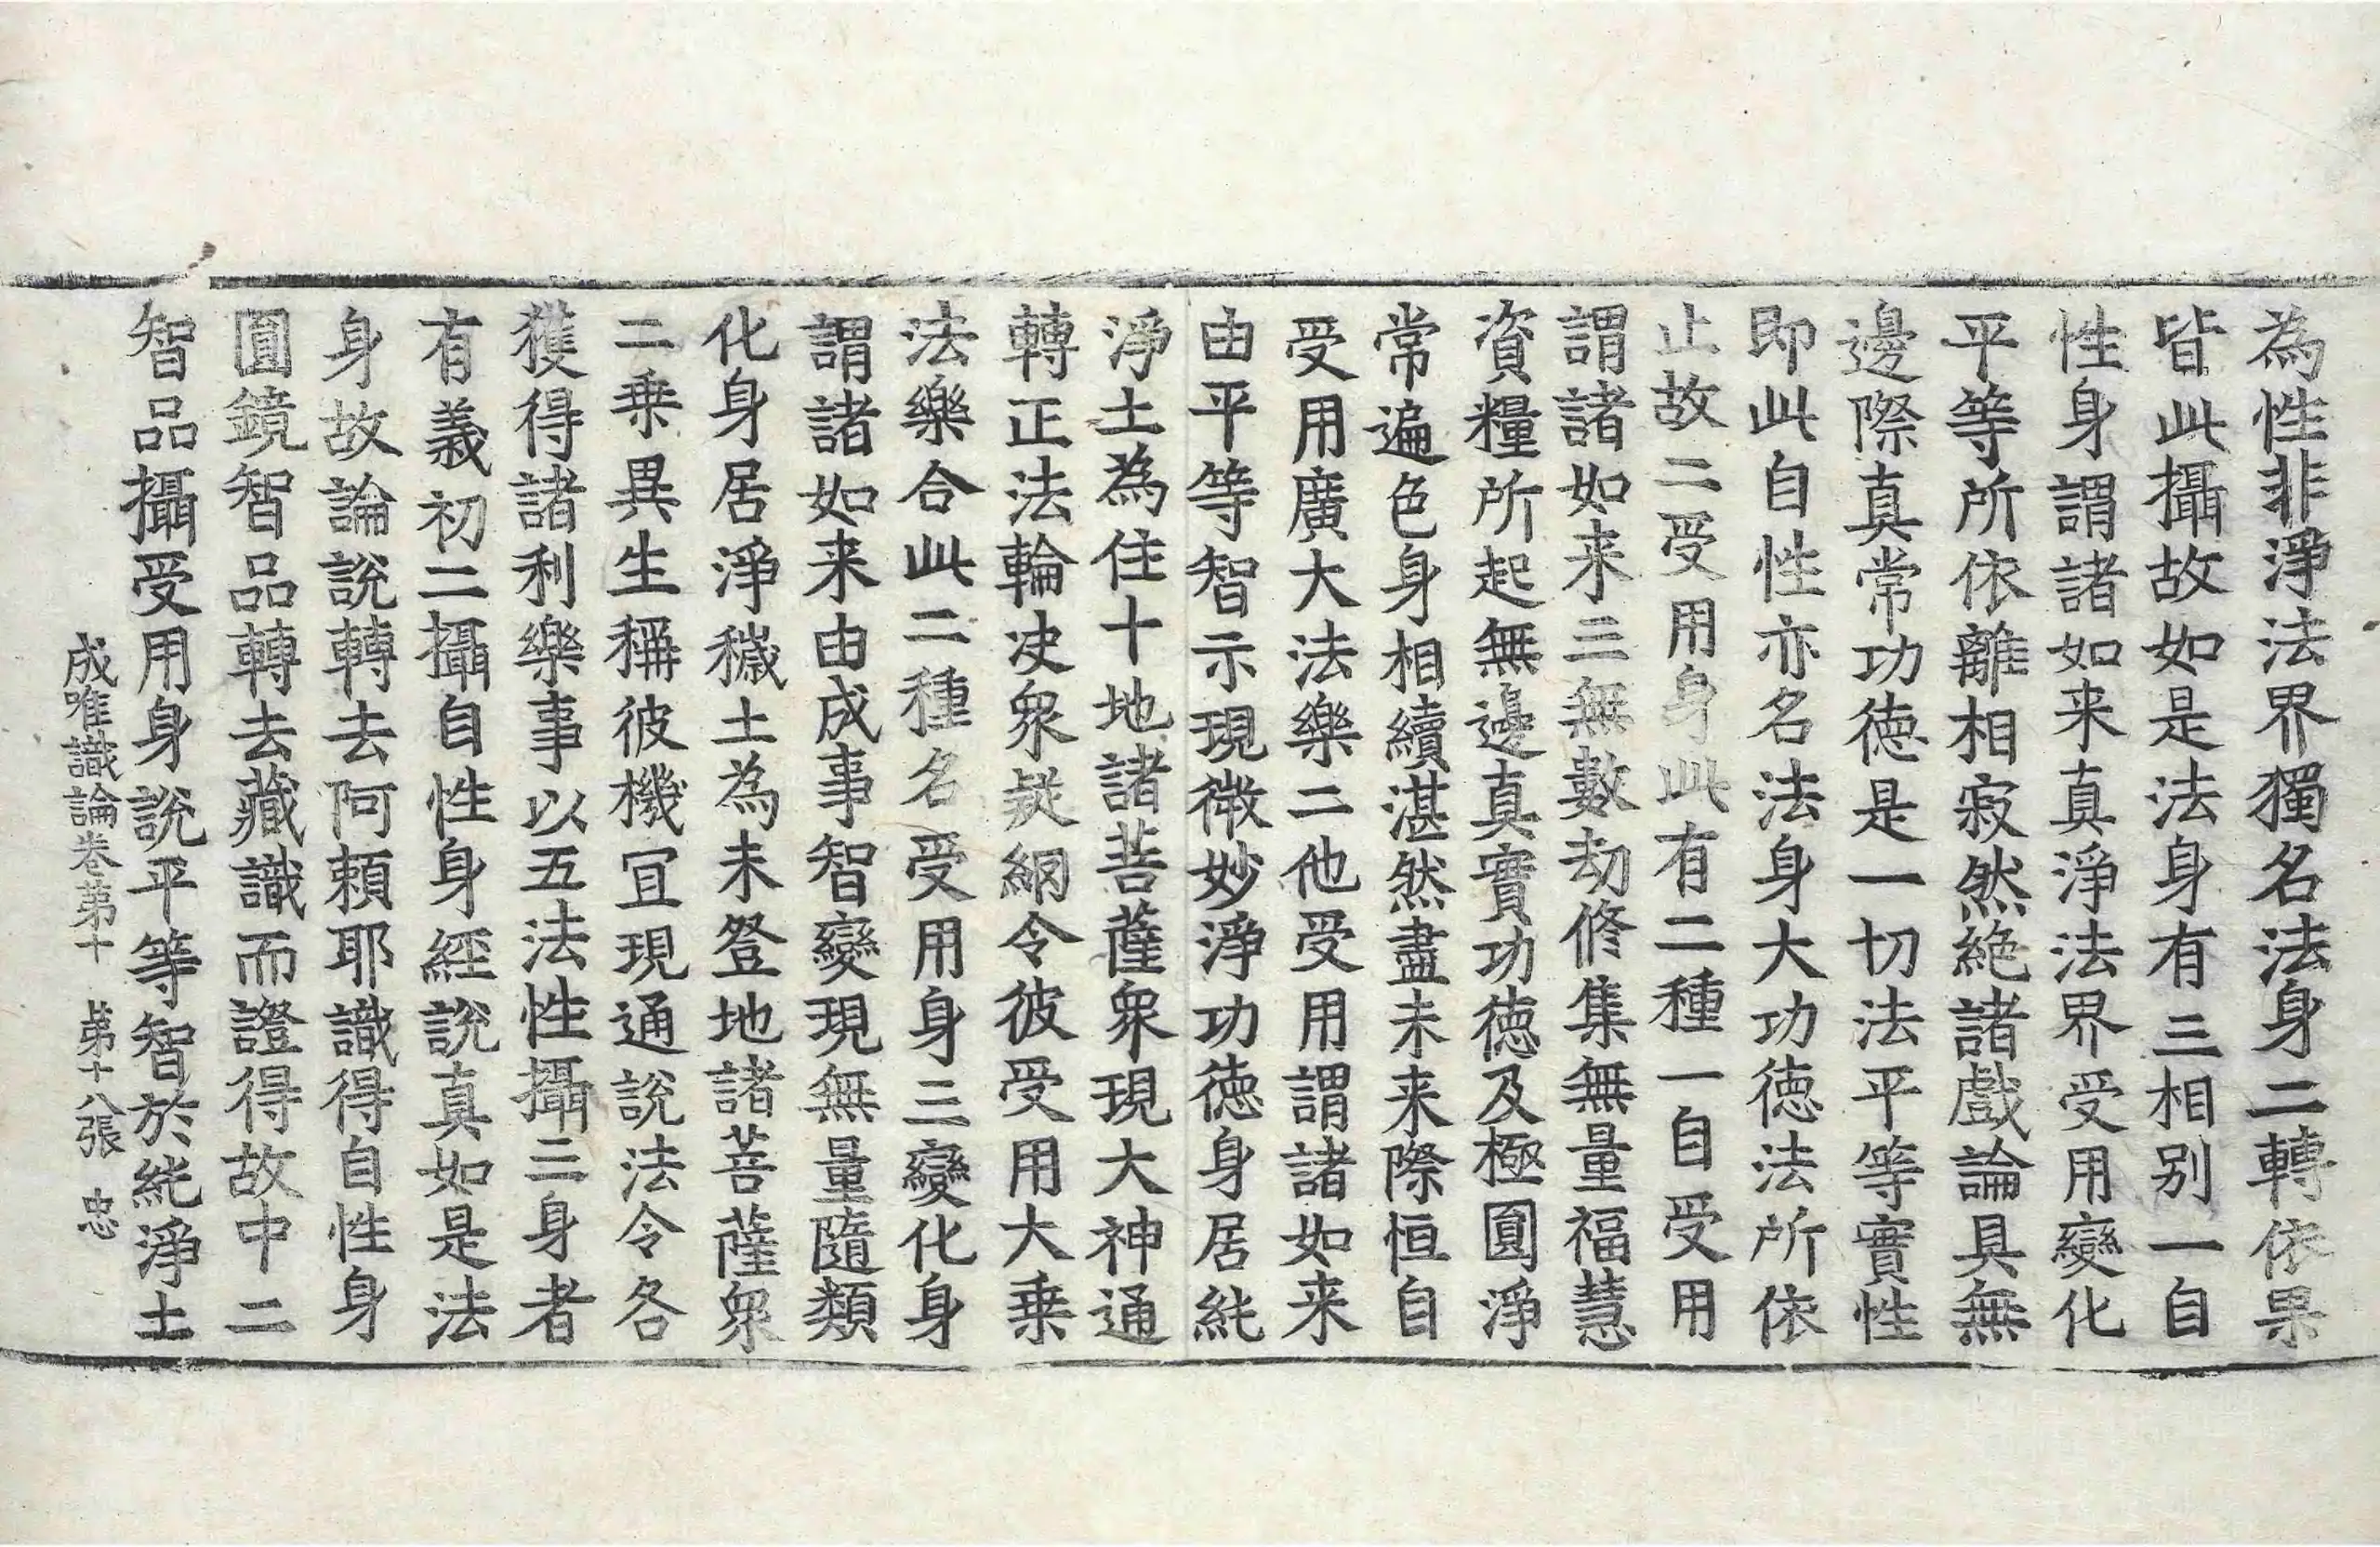 為性非淨法界獨名法身二轉依果
皆此攝故如是法身有三相別一自
性身謂諸如来真淨法界受用變化
平等所依離相寂然絶諸戲論具無
邊際真常功德是一切法平等實性
即此自性亦名法身大功德法所依
止故二受用身此有二種一自受用
謂諸如来三無數劫修集無量福慧
資糧所起無邊真實功德及極圓淨
常遍色身相續湛然盡未来際恒自
受用廣大法樂二他受用謂諸如来
由平等智示現微妙淨功德身居純
淨土為住十地諸菩薩衆現大神通
轉正法輪决衆疑網令彼受用大乗
法樂合此二種名受用身三變化身
謂諸如来由成事智變現無量隨類
化身居淨穢土為未登地諸菩薩衆
二乗異生稱彼機冝現通說法令各
獲得諸利樂事以五法性攝三身者
有義初二攝自性身經說真如是法
身故論說轉去阿頼耶識得自性身
圓鏡智品轉去藏識而證得故中二
智品攝受用身說平等智於純淨土
成唯識論卷第十 第十八張 忠